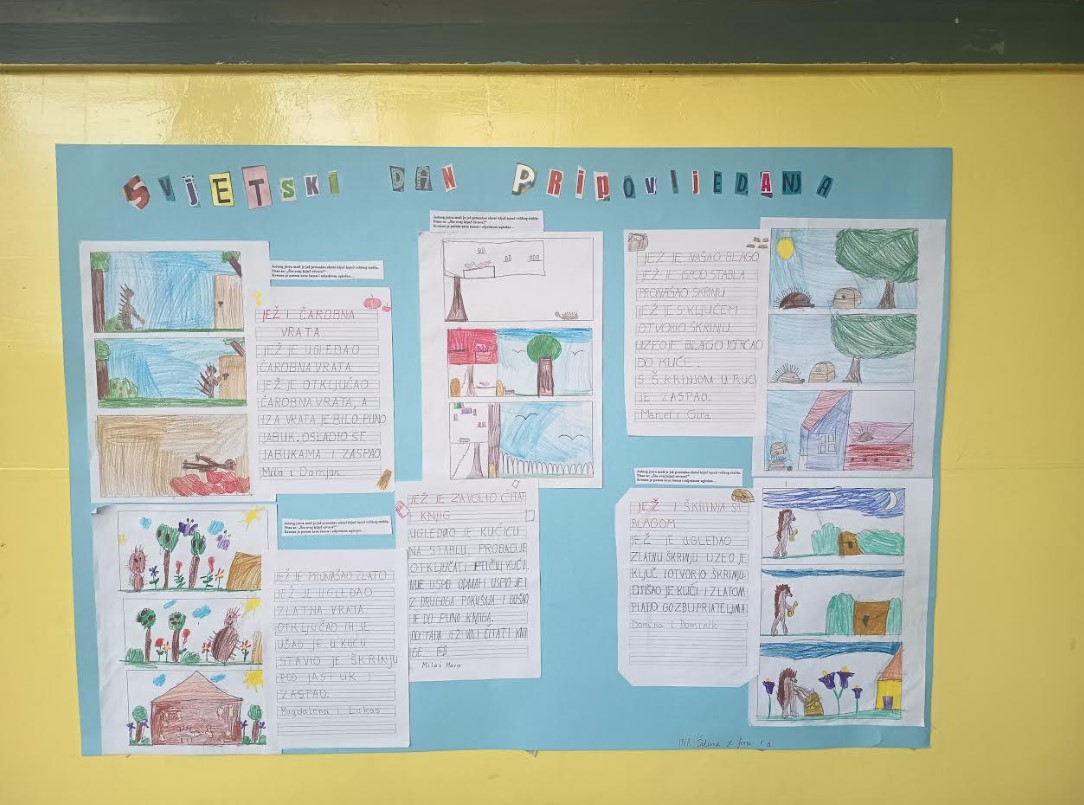 SVJETSKI DAN PRIPOVIJEDANJA
JEŽ I ČAROBNA
VRATA
JEŽ JE UGLEDAO
ČAROBNA VRATA.
JEŽ JE OTKLJUČAO
ČAROBNA VRATA, A
IZA VRATA JE BILO PUNO
JABUK. OSLADIO SE
JABUKAMA I ZASPAO.
Mila i Damjan
JEŽ JE PRONAŠAO ZLATO
JEŽ JE UGLEDAO
ZLATNA VRATA.
OTKLJUČAO IH JE
UŠAO JE U KUĆU
STAVIO JE ŠKRINJU
POD JASTUK I
ZASPAO.
Magdalena i Lukas
JEŽ JE ZAVOLIO ČITAT
I KNJIG
UGLEDAO JE KUĆICU
NA STABLU, PROBAO JE
OTKLJUČATI PTIČJU KUĆU,
NIJE USPIO ODMAH USPIO JE I
Z DRUGOGA POKUŠAJA I DOŠAO
JE DO PUNO KNJIGA.
OD TADA JEŽ VOLI ČITATI KNJI
GE.
JEŽ JE NAŠAO BLAGO
JEŽ JE ISPOD STABLA
PRONAŠAO ŠKRINJU
JEŽ JE S KLJUČEM
OTVORIO ŠKRINJU
UZEO JE BLAGO I OTRČAO
DO KUĆE.
S ŠKRINJOM U RUCI
JE ZASPAO.
Marcel i
JEŽ I ŠKRINJA S
BLAGOM
JEŽ JE UGLEDAO
ZLATNU ŠKRINJU UZEO JE
KLJUČ I OTVORIO ŠKRINJU.
OTIŠAO JE KUĆI I ZLATOM
PLATIO GOZBU PRIJATELJIMA
Domina i Dominik